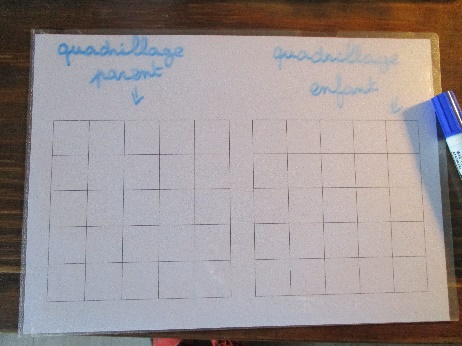 quadrillage
parent
quadrillage
enfant